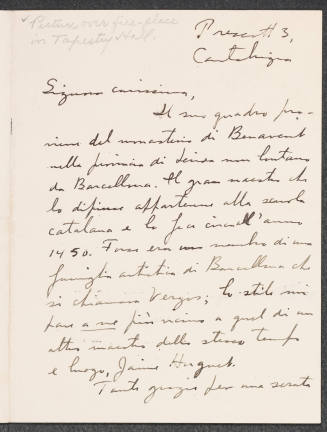 ✓ Picture over fireplace
in Tapestry Hall.
Prescott 3,
Cantabrigia
Signora carissima,
Il suo quadro pro-
viene del monasterio di Benavent
nella provincia di Leida non lontano
da Barcellona. Il gran maestro che
lo dipinse appartenne alla scuola
catalana e lo fece circa all'anno
1450. Forse era un membro di una
famiglia artistica di Barcellona che
si chiamava Vergos; lo stile mi
pare a me più vicino a quel di un
altro maestro dello stesso tempo
e luogo, Jaime Huguet.
Tante grazie per una serata